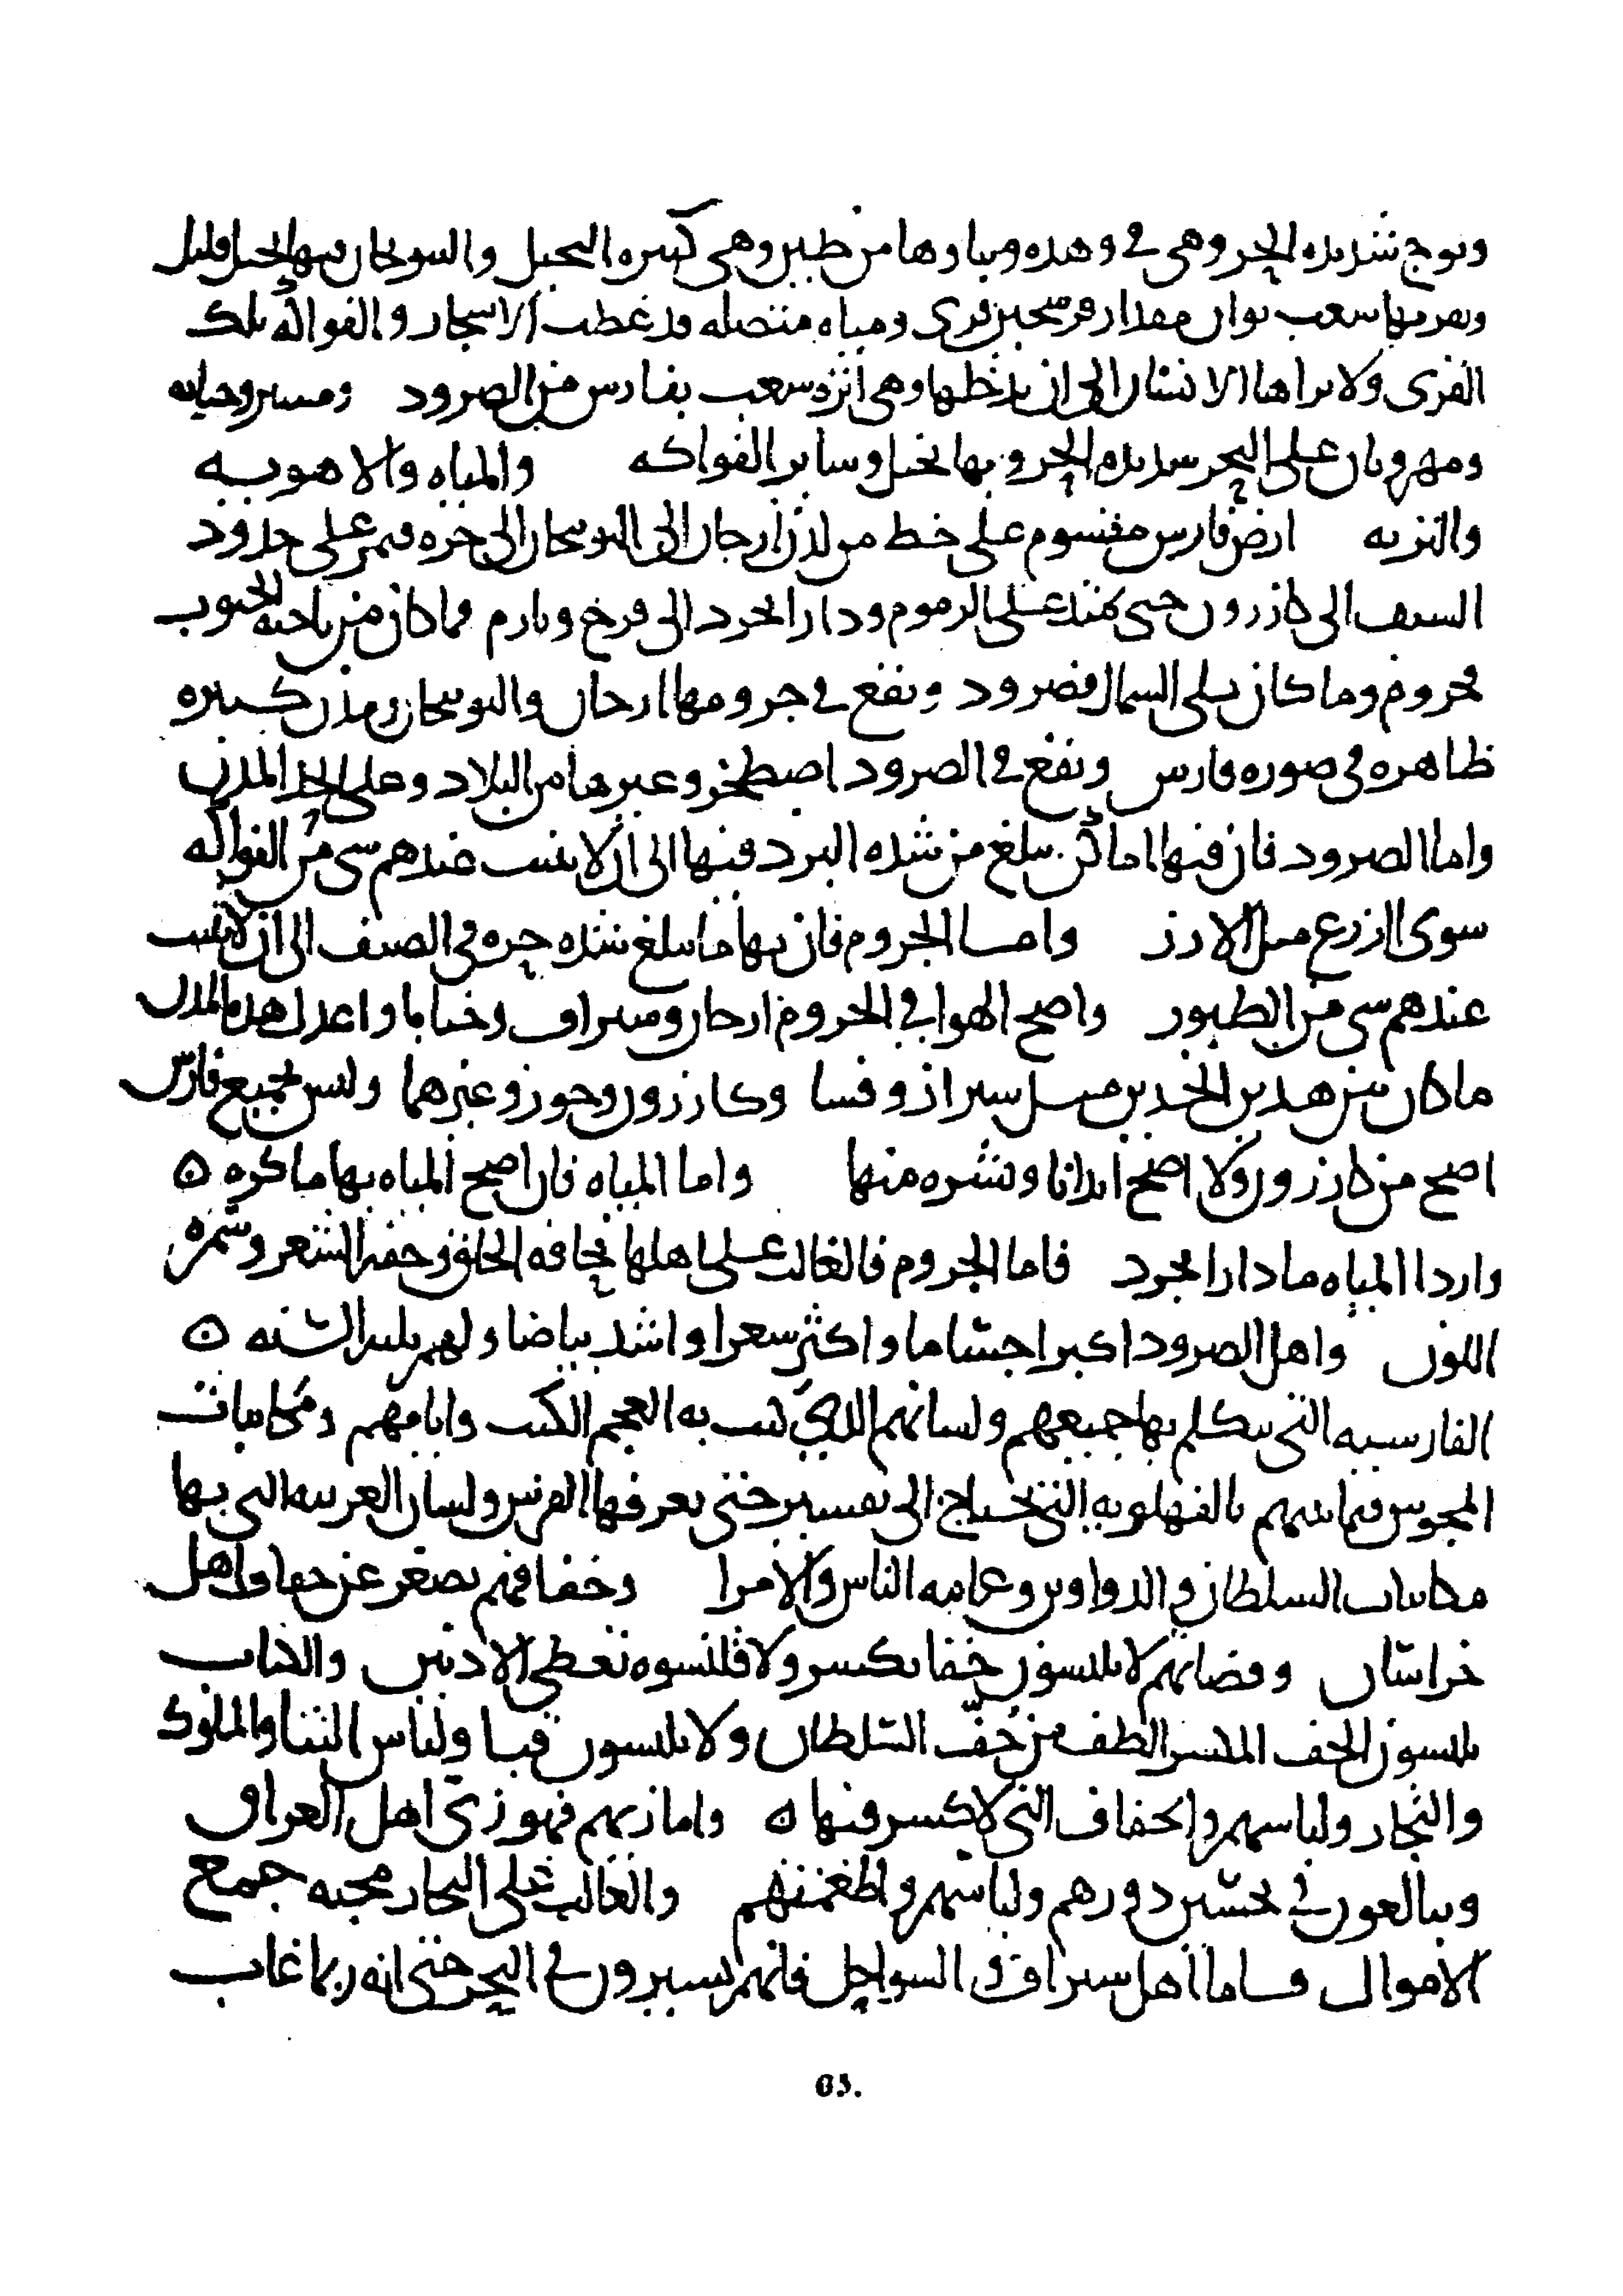 وتوج شديده الحر وهي في وهده وبناوها من طين وهي كثيره النخيل والنوبنجان فيها نخيل قليل
وبقربها شعب بوان مقدار فرسخين قرى ومياه متصله قد غطت الاشجار والفواكه تلك
القرى ولا يراها الانسان الى ان يدخلها وهي انزه شعب بفارس من الصرود وسينيز وجنابه
ومهروبان على البحر شديده الحر وبها نخيل وساير الفواكه والمياه والاهويه
والتربه ارض فارس مقسوم على خط من لدن ارجان الى النوبنجان الى خره فيمر على حدود
السيف الى كازرون حتى تمتد على الرموم ودارابجرد الى فرج وتارم فما كان من ناحيه الجنوب
فجروم وما كان يلي الشمال فصرود ويقع في جرومها ارجان والنوبنجان ومدن كثيره
ظاهره في صوره فارس ويقع في الصرود اصطخر وغيرها من البلاد وعلى الحد المدن
واما الصرود فان فيها اماكن يبلغ من شده البرد فيها الى ان لا ينبت عندهم شي من الفواكه
سوى الزرع مثل الارز واما الجروم فان بها ما يبلغ شده حره في الصيف الى ان لا يثبت
عندهم شي من الطيور واصح الهوا في الجروم ارجان وسيراف وجنابا واعدل هذه المدن
ما كان بين هذين الحدين مثل شيراز وفسا وكازرون وجور وغيرهما وليس بجميع فارس
اصح من كازرون ولا اصح ابدانا وبشره منها واما المياه فان اصح المياه بها ما كره ن
واردا المياه ما دارابجرد فاما الجروم فالغالب على اهلها نحافه الخلق وخفه الشعر وسمره
اللون واهل الصرود اكبر اجساما واكثر شعرا واشد بياضا ولهم ثلث السنه ن
الفارسيه التي يتكلم بها جميعهم ولسانهم الذي كتب به العجم الكتب وايامهم ومكاتبات
المجوس فيما بينهم بالفهلويه التي تحتاج الى تفسير حتى يعرفها الفرس ولسان العربيه التي بها
مكاتبات السلطان والدواوين وعامه الناس والامرا وخفافهم تصغر عن خفاف اهل
خراسان وقضاتهم لا يلبسون خفا بكسر ولا قلنسوه تغطي الاذنين والكتاب
يلبسون الخف المكسر الطف من خف السلطان ولا يلبسون قبا ولباس التنا والملوك
والتجار ولباسهم والخفاف التي لا كسر فيها ن واما زيهم فهو زي اهل العراق
ويبالغون في تحسين دورهم ولباسهم واطعمتهم والغالب على التجار محبه جمع
الاموال فاما اهل سيراف والسواحل فانهم يسيرون في البحر حتى انه ربما غاب
63.